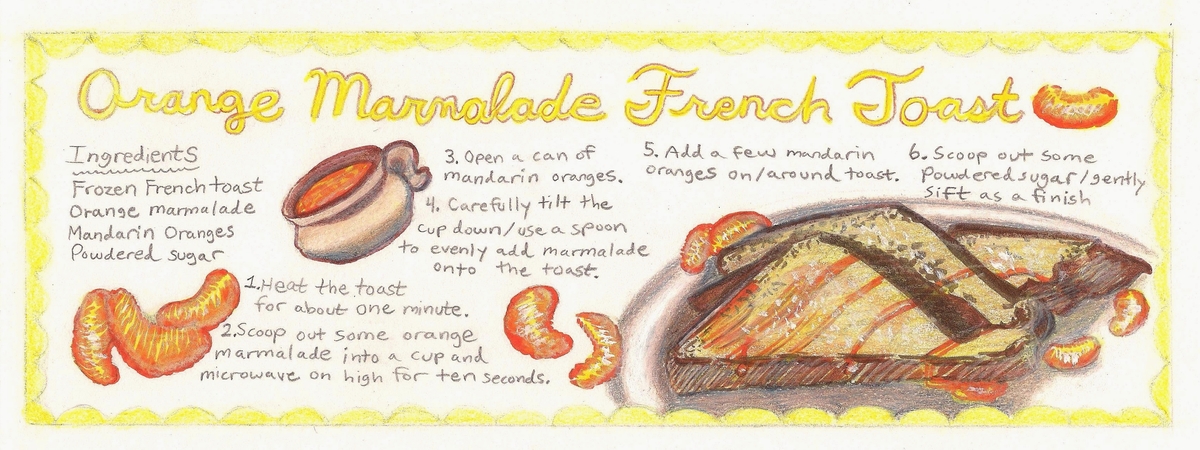 Orange Marmalade French Toast
Ingredients
Frozen French toast
Orange marmalade
Mandarin Oranges
Powdered sugar
1. Heat the toast
for about one minute.
2. Scoop out some orange
marmalade into a cup and
microwave on high for ten seconds.
3. Open a can of
mandarin oranges.
4. Carefully tilt the
cup down/use a spoon
to evenly add marmalade
onto the toast.
5. Add a few mandarin
oranges on/around toast.
6. Scoop out some
powdered sugar/gently
sift as a finish